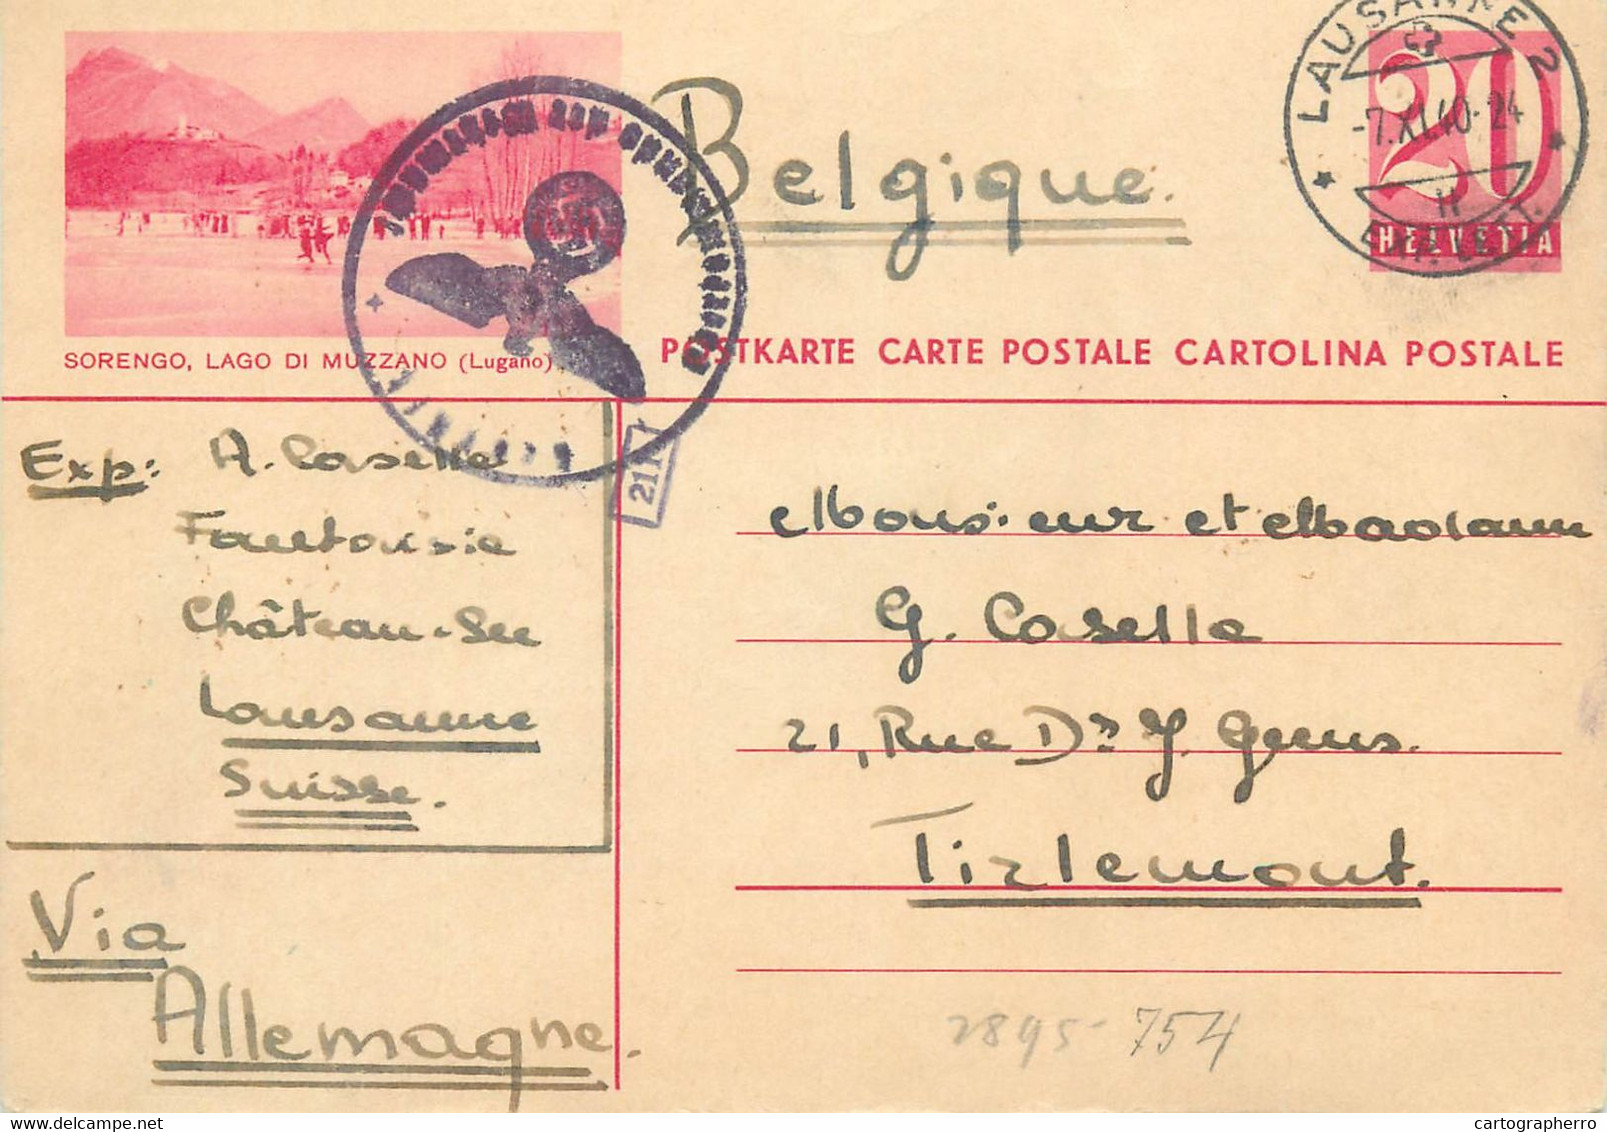 LAUSANNE 2
-7.XI.40-24
20
HELVETIA
Belgique.
SORENGO, LAGO DI MUZZANO (Lugano)
POSTKARTE CARTE POSTALE CARTOLINA POSTALE
Oberkommando der Wehrmacht
21N
Exp: A. Caselle
Fantaisie
Château-Sec
Lausanne
Suisse.
Via
Allemagne.
Monsieur et Madame
G. Caselle
21, Rue Dr J. Geens.
Tirlemont.
2895-754
delcampe.net
cartographerro